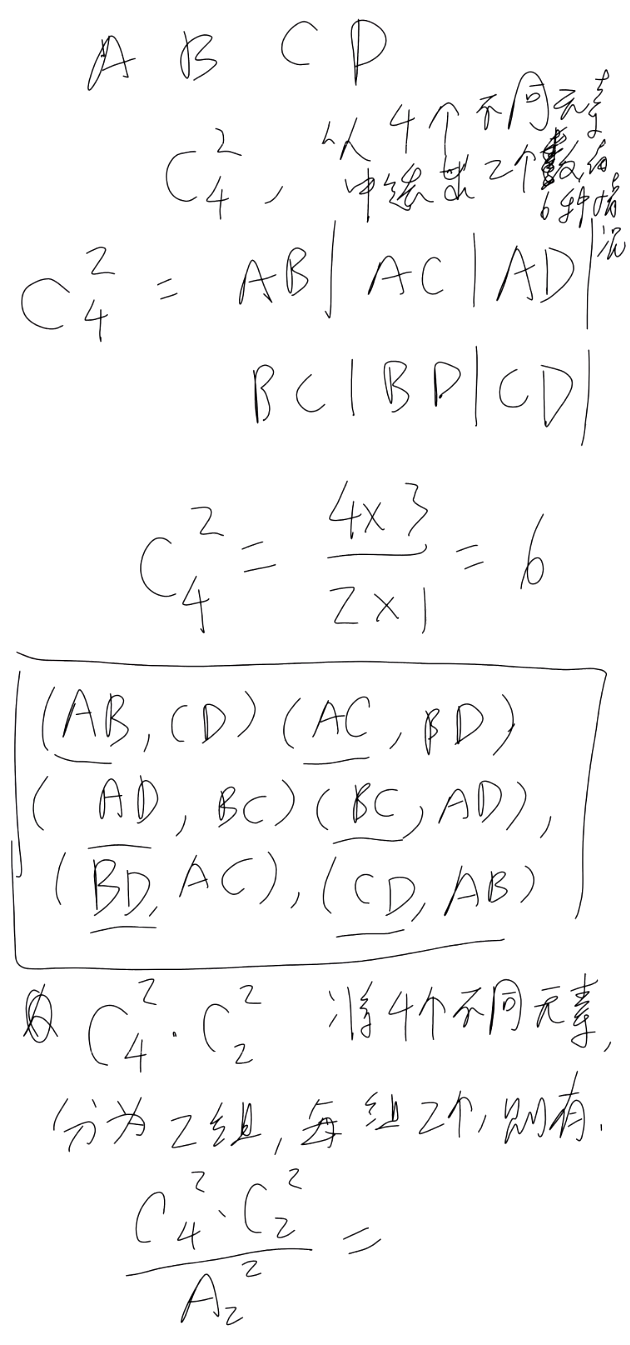 A B C D
C₄², 从4个不同元素
中选出2个数有
6种情况
C₄² = AB| AC | AD|
BC | BD | CD|
C₄² = 4×3/2×1 = 6
(AB, CD) (AC, BD)
( AD, BC) (BC, AD),
(BD, AC), (CD, AB)
C₄² · C₂² 将4个不同元素,
分为2组, 每组2个, 则有.
C₄² · C₂²/A₂² =